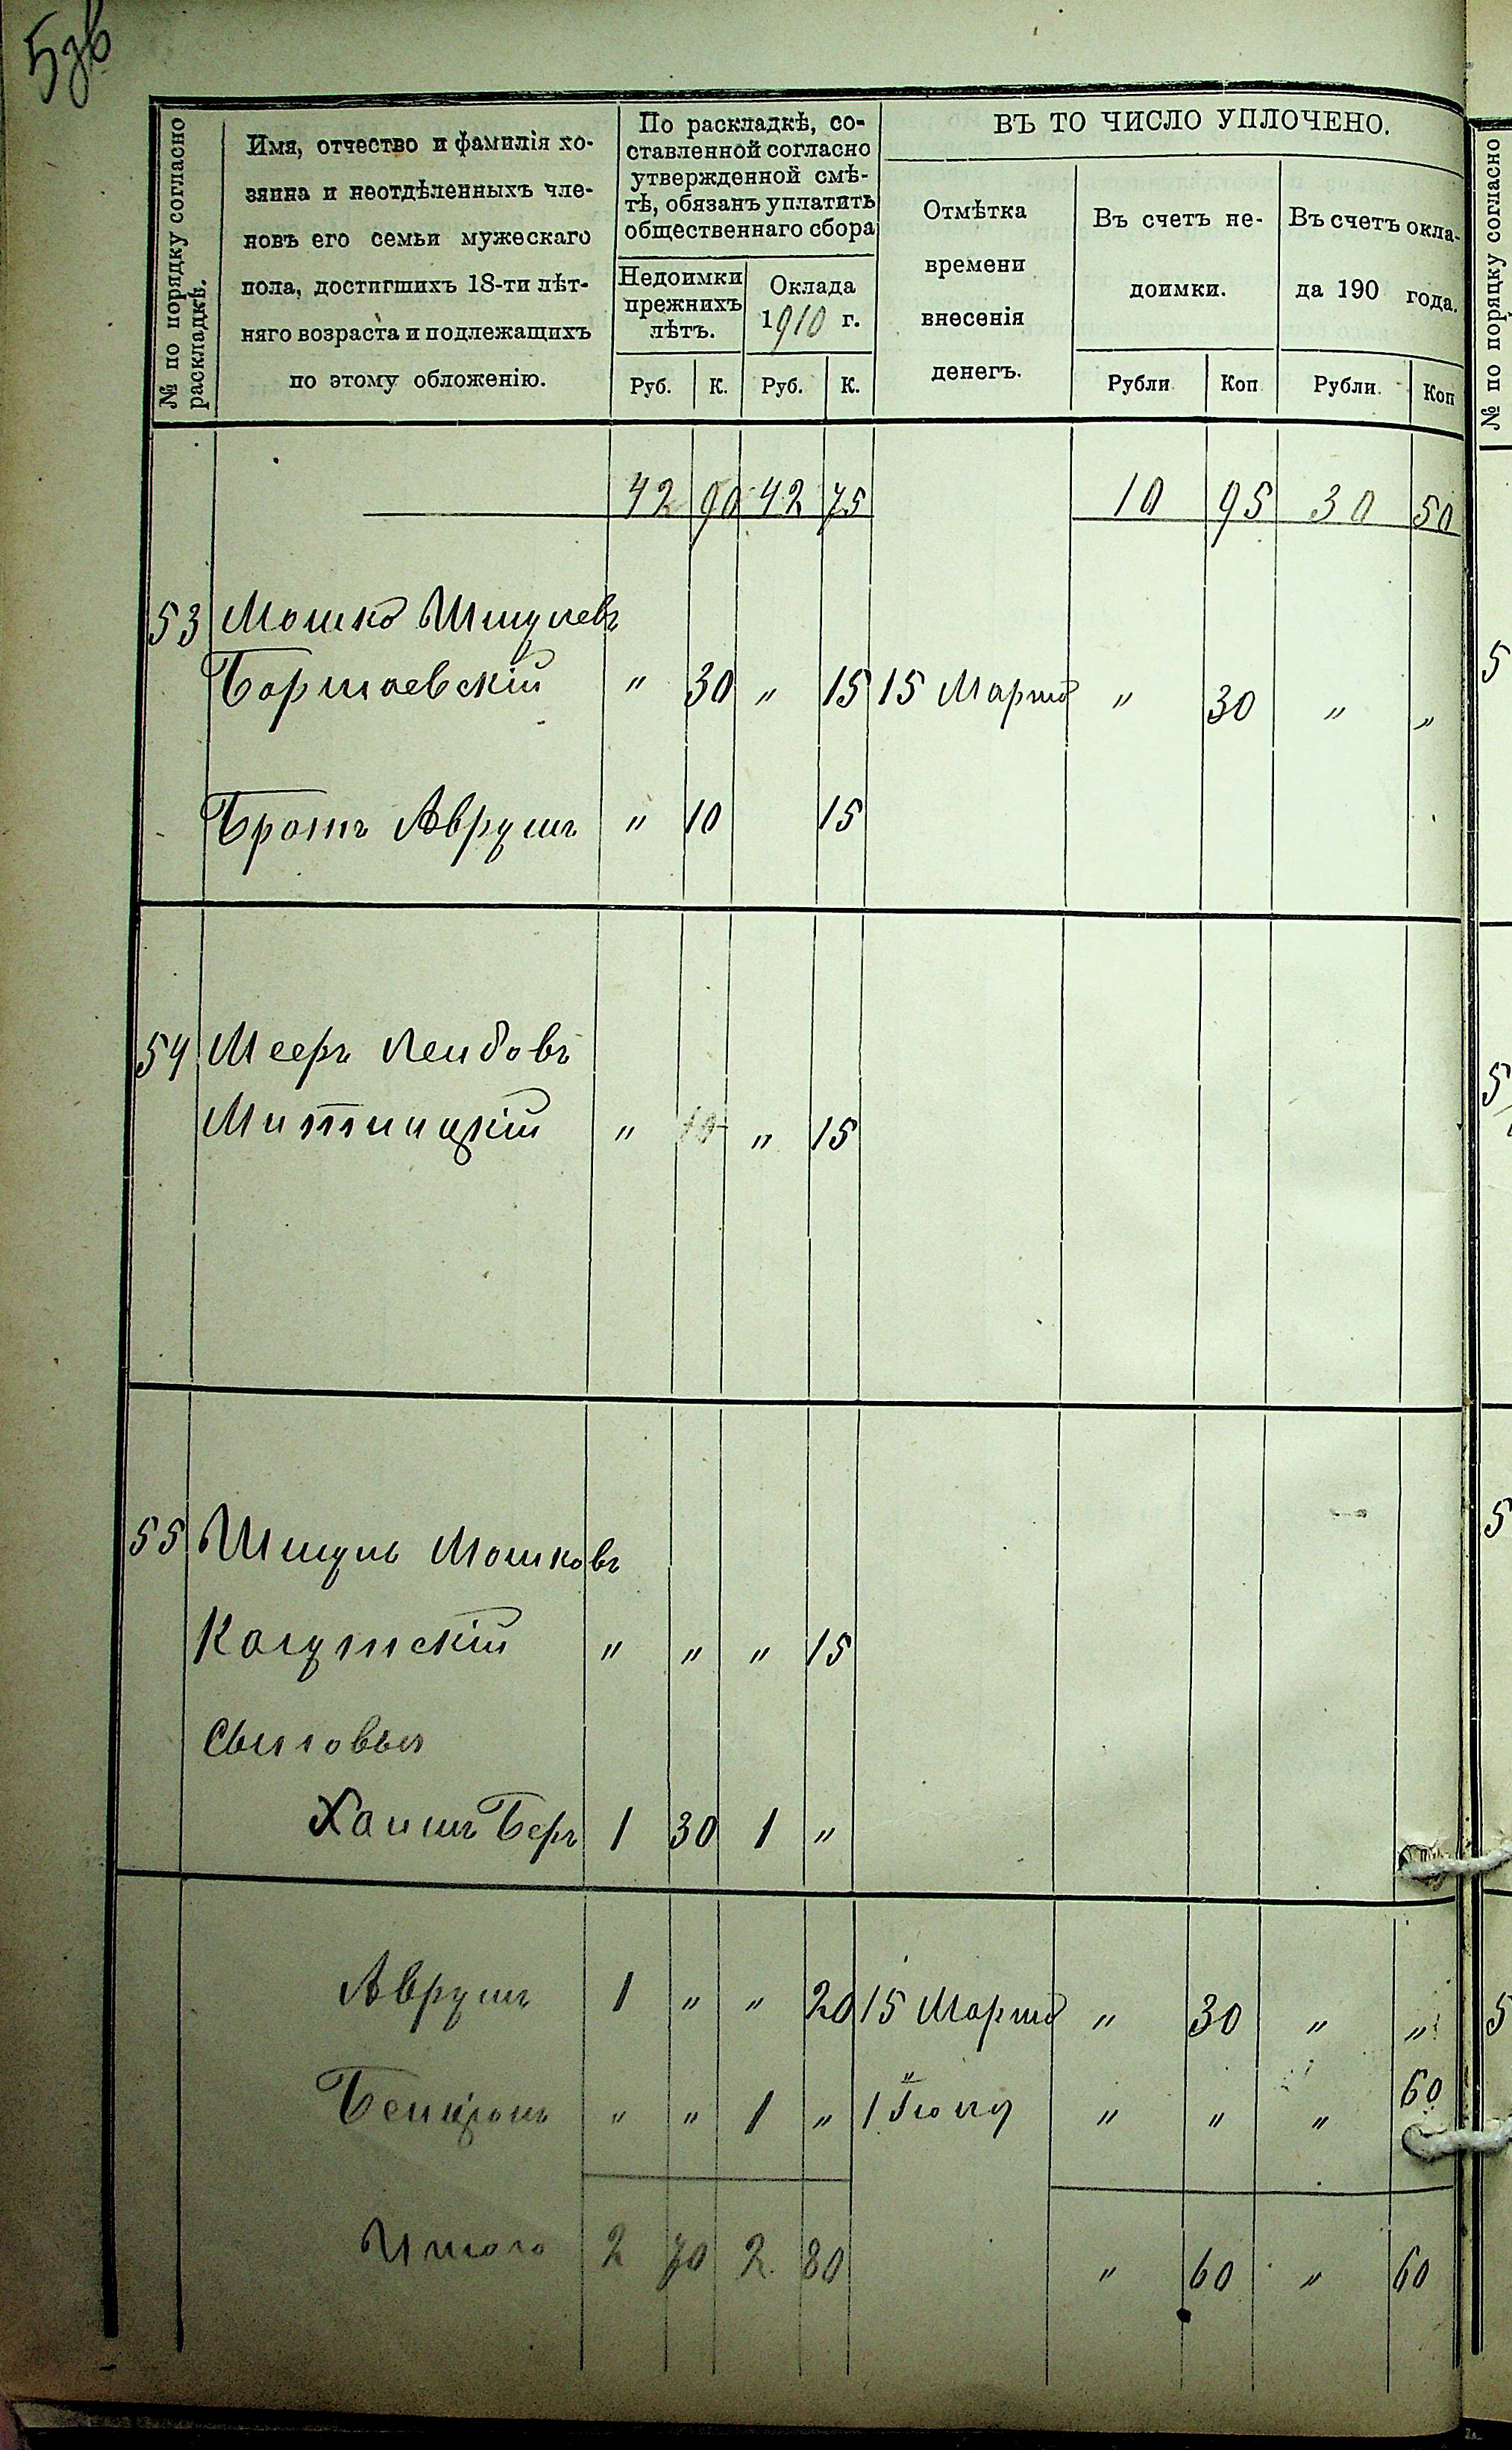 5зв
№ по порядку согласно раскладкѣ.
Имя, отчество и фамилія хо-
зяина и неотдѣленныхъ чле-
новъ его семьи мужескаго
пола, достигшихъ 18-ти лѣт-
няго возраста и подлежащихъ
по этому обложенію.
По раскладкѣ, со-
ставленной согласно
утвержденной смѣ-
тѣ, обязанъ уплатить
общественнаго сбора
Недоимки
прежнихъ
лѣтъ.
Руб. К.
Оклада
1910 г.
Руб. К.
ВЪ ТО ЧИСЛО УПЛОЧЕНО.
Отмѣтка
времени
внесенія
денегъ.
Въ счетъ не-
доимки.
Рубли Коп
Въ счетъ окла-
да 190 года.
Рубли. Коп
42 90 42 75 10 95 30 50
53 Мошко Шмулевъ
Боршаевскій " 30 " 15 15 Марта " 30 " "
Братъ Аврумъ " 10 15
54 Мееръ Лейбовъ
" " 15
55 Шмуль Мошковъ
" " " 15
Сыновья
Хаимъ Беръ 1 30 1 "
Аврумъ 1 " " 20 15 Марта " 30 " "
Бенціонъ " " 1 " 1 Іюня " " " 60
Итого 2 70 2 80 " 60 " 60
№ по порядку согласно